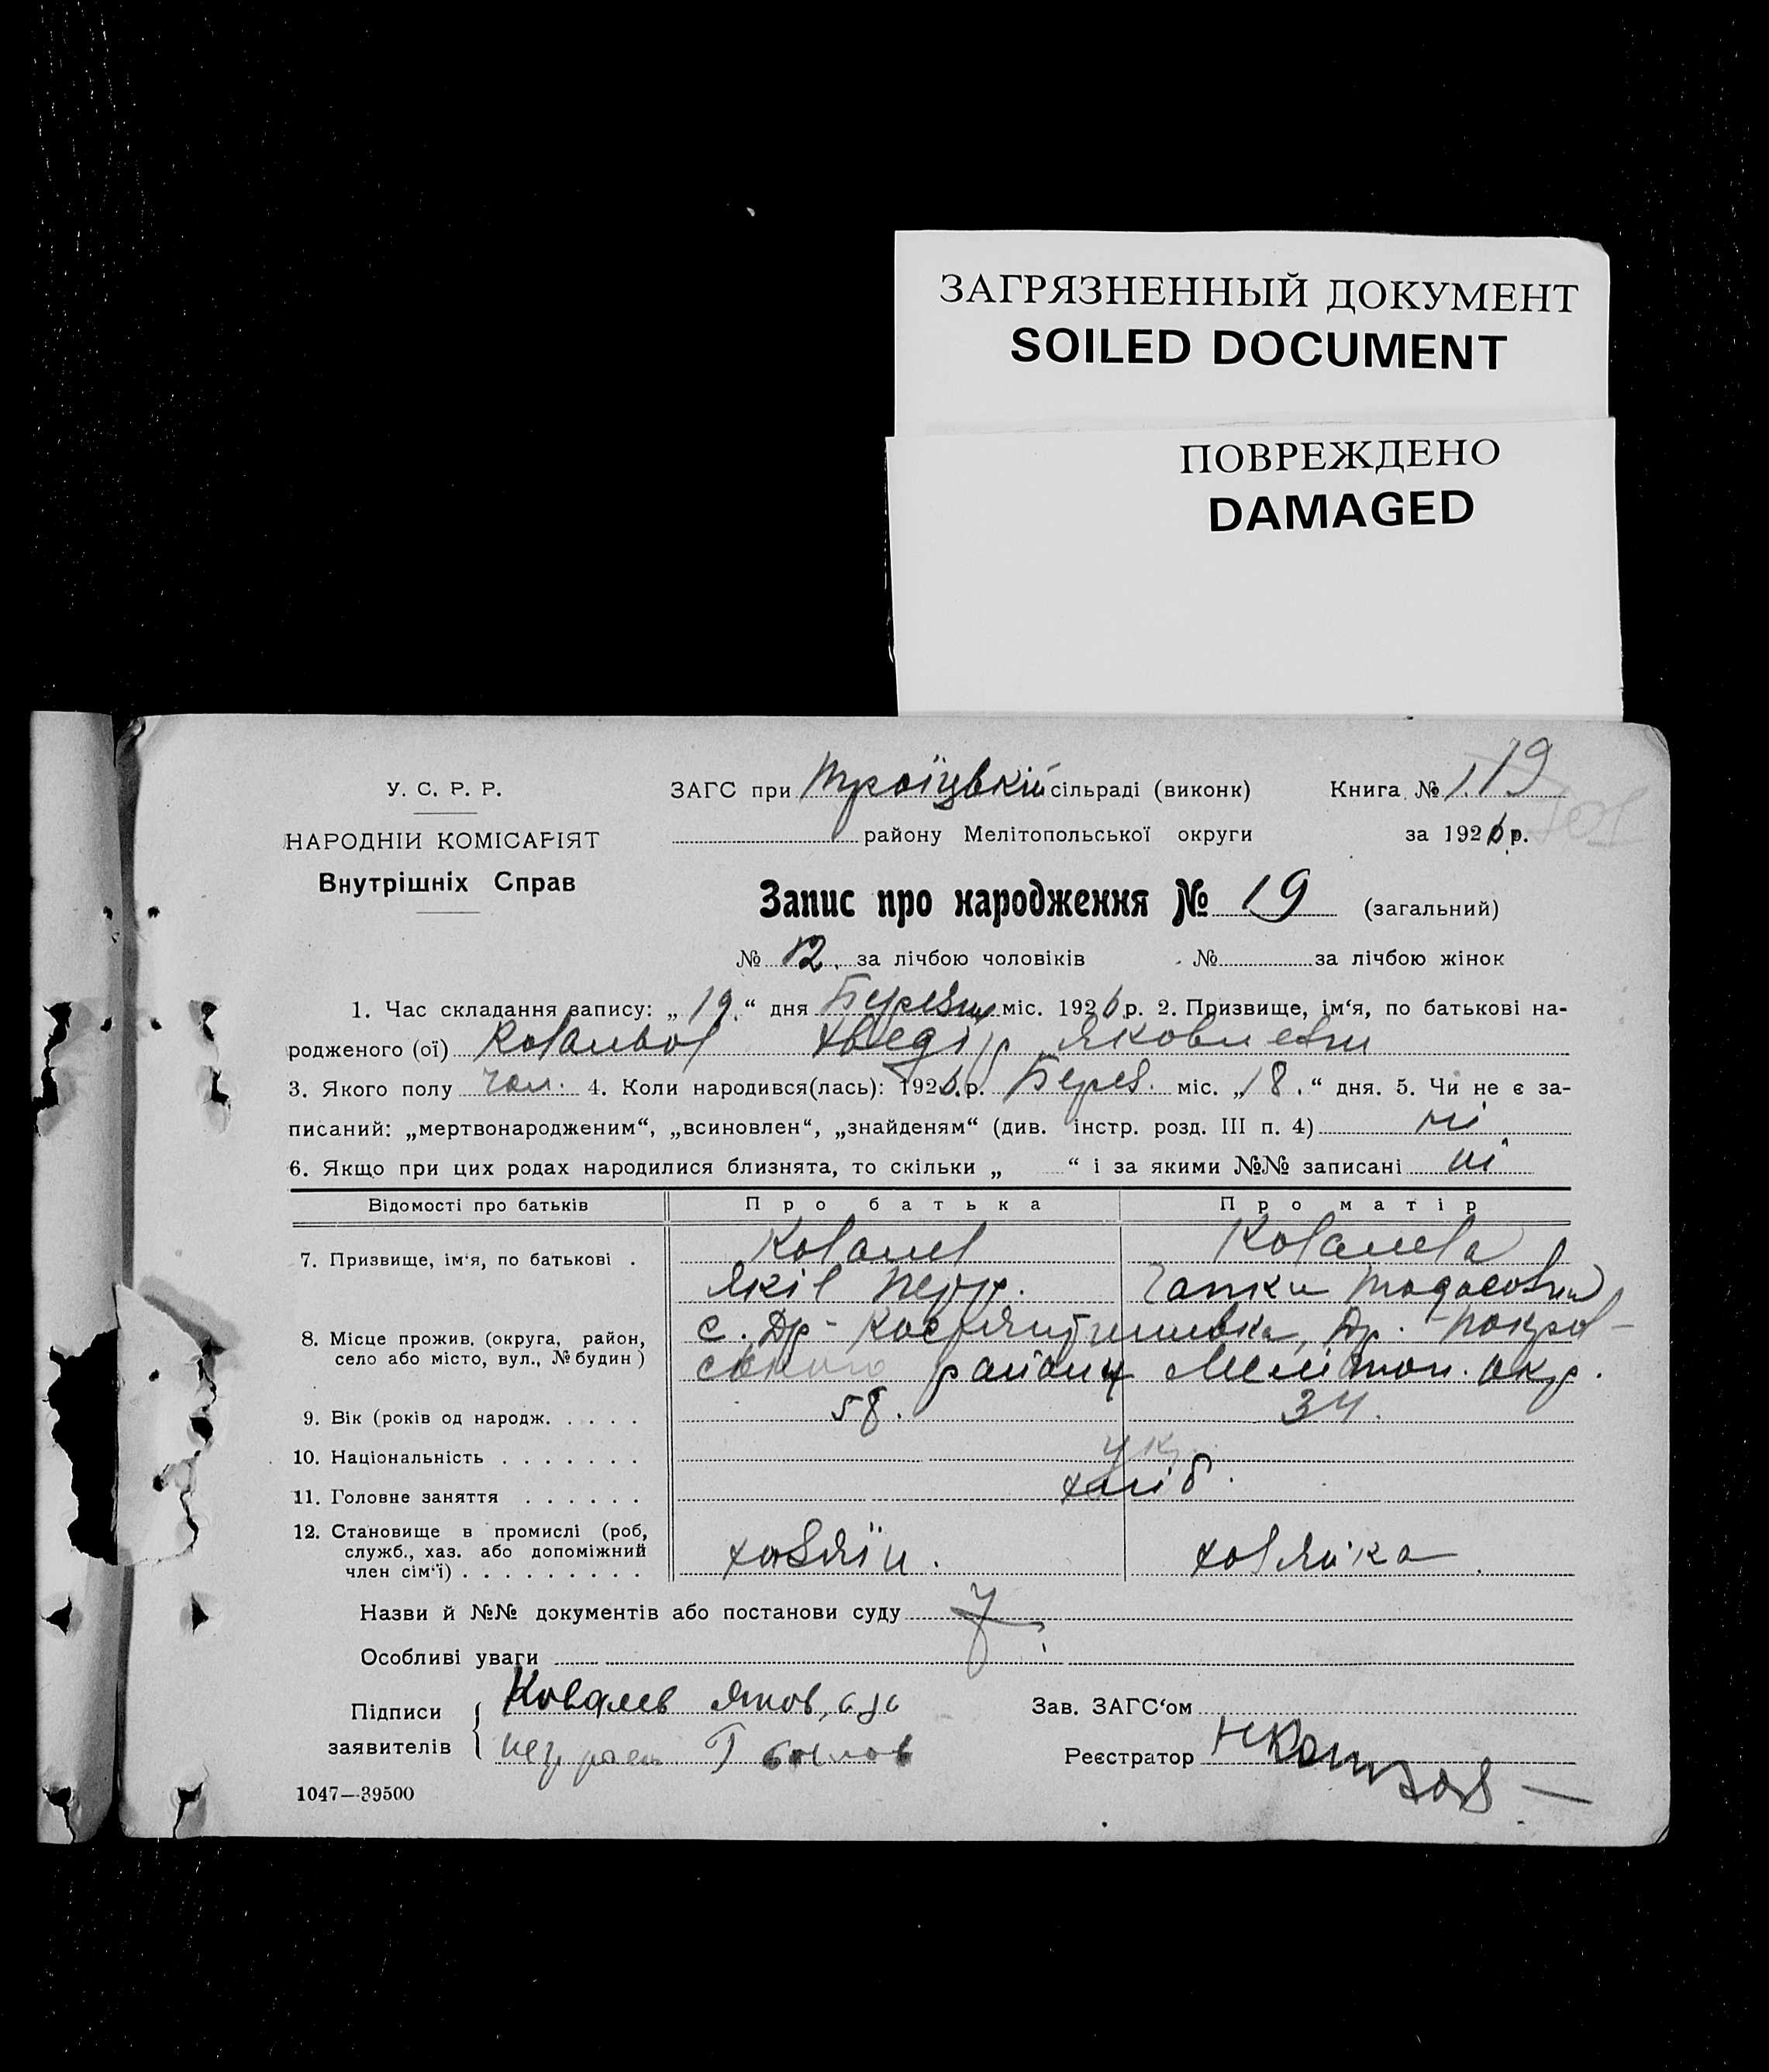 ЗАГРЯЗНЕННЫЙ ДОКУМЕНТ
SOILED DOCUMENT
ПОВРЕЖДЕНО
DAMAGED
У. С. Р. Р.
НАРОДНІЙ КОМІСАРІЯТ
Внутрішніх Справ
ЗАГС при Троїцькій сільраді (виконк)
Книга № 119
району Мелітопольської округи
за 1926 р.
Запис про народження № 19 (загальний)
№ 12. за лічбою чоловіків № за лічбою жінок
1. Час складання запису: „ 19. “ дня міс. 1926 р. 2. Призвище, ім‘я, по батькові на-
родженого (ої) Хведір Яковлевич
3. Якого полу чол. 4. Коли народився(лась): 1926. р. Берез. міс. „ 18. “ дня. 5. Чи не є за-
писаний: „мертвонародженим“, „всиновлен“, „знайденям“ (див. інстр. розд. III п. 4) ні
6. Якщо при цих родах народилися близнята, то скільки „ “ і за якими №№ записані ні
Відомості про батьків Про батька Про матір
7. Призвище, ім‘я, по батькові . Ковалев Ковалева
Яків Петр.
8. Місце прожив. (округа, район, село або місто, вул., № будин) с. Др-
ського району Мелітоп. окр.
9. Вік (років од народж. . . . . 58. 34.
10. Національність . . . . . . . Укр.
11. Головне заняття . . . . . . хліб.
12. Становище в промислі (роб, служб., хаз. або допоміжний член сім‘ї) . . . . . . . . . хозяїн. хозяйка
Назви й №№ документів або постанови суду
Особливі уваги
Підписи заявителів Ковалев Яков,
Зав. ЗАГС‘ом
Реєстратор
1047—39500